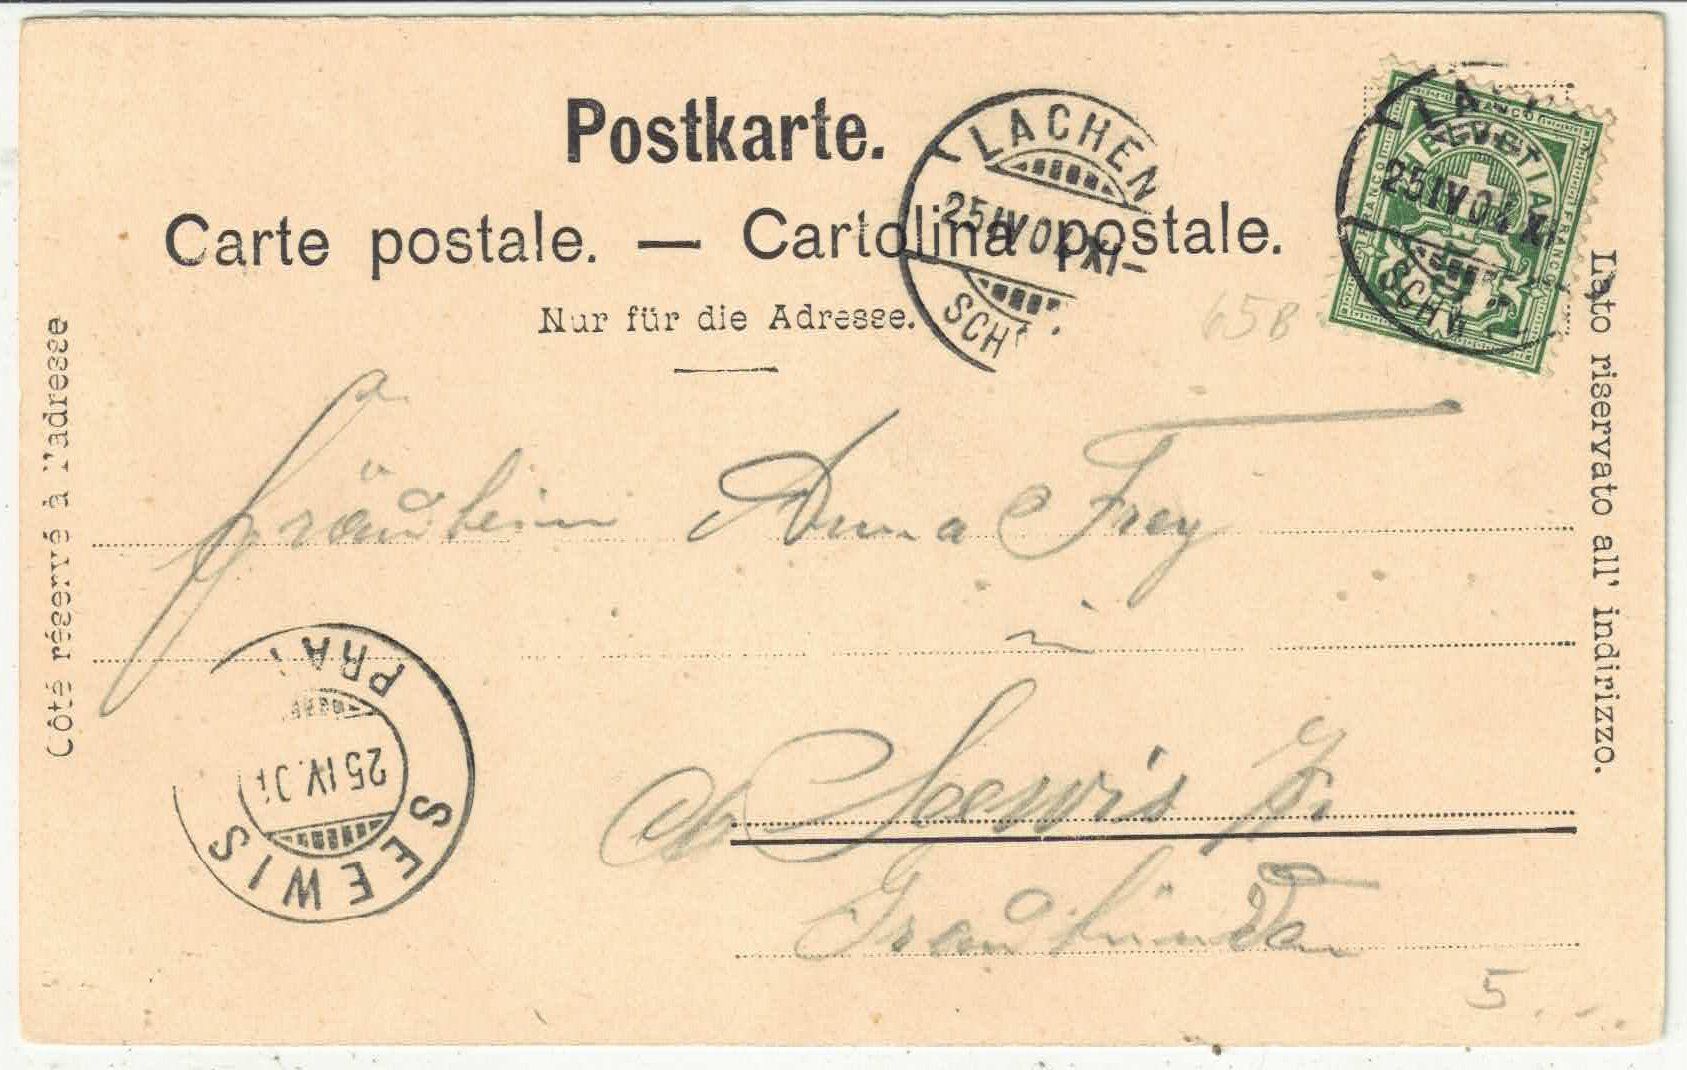 Postkarte.
Carte postale. — Cartolina postale.
Nur für die Adresse.
Côté réservé à l'adresse
Lato riservato all' indirizzo.
LACHEN
25 IV 04 XI–
SCH
HELVETIA
FRANCO
LA
25 IV 04 XI
SCHW
65B
Fräulein Anna Frey
in
Seewis
Graubünden
PRÄ
25 IV. 0
SEEWIS
5